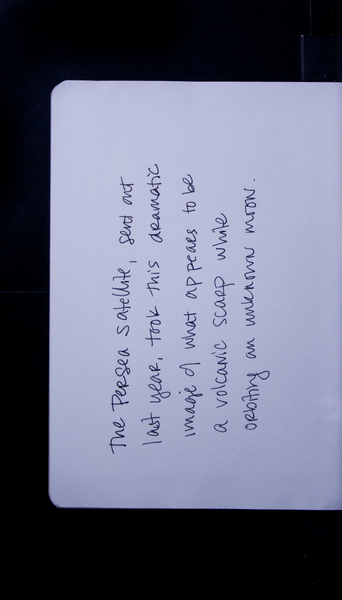 The Persea satellite, sent out
last year, took this dramatic
image of what appears to be
a volcanic scarp while
orbiting an unknown moon.